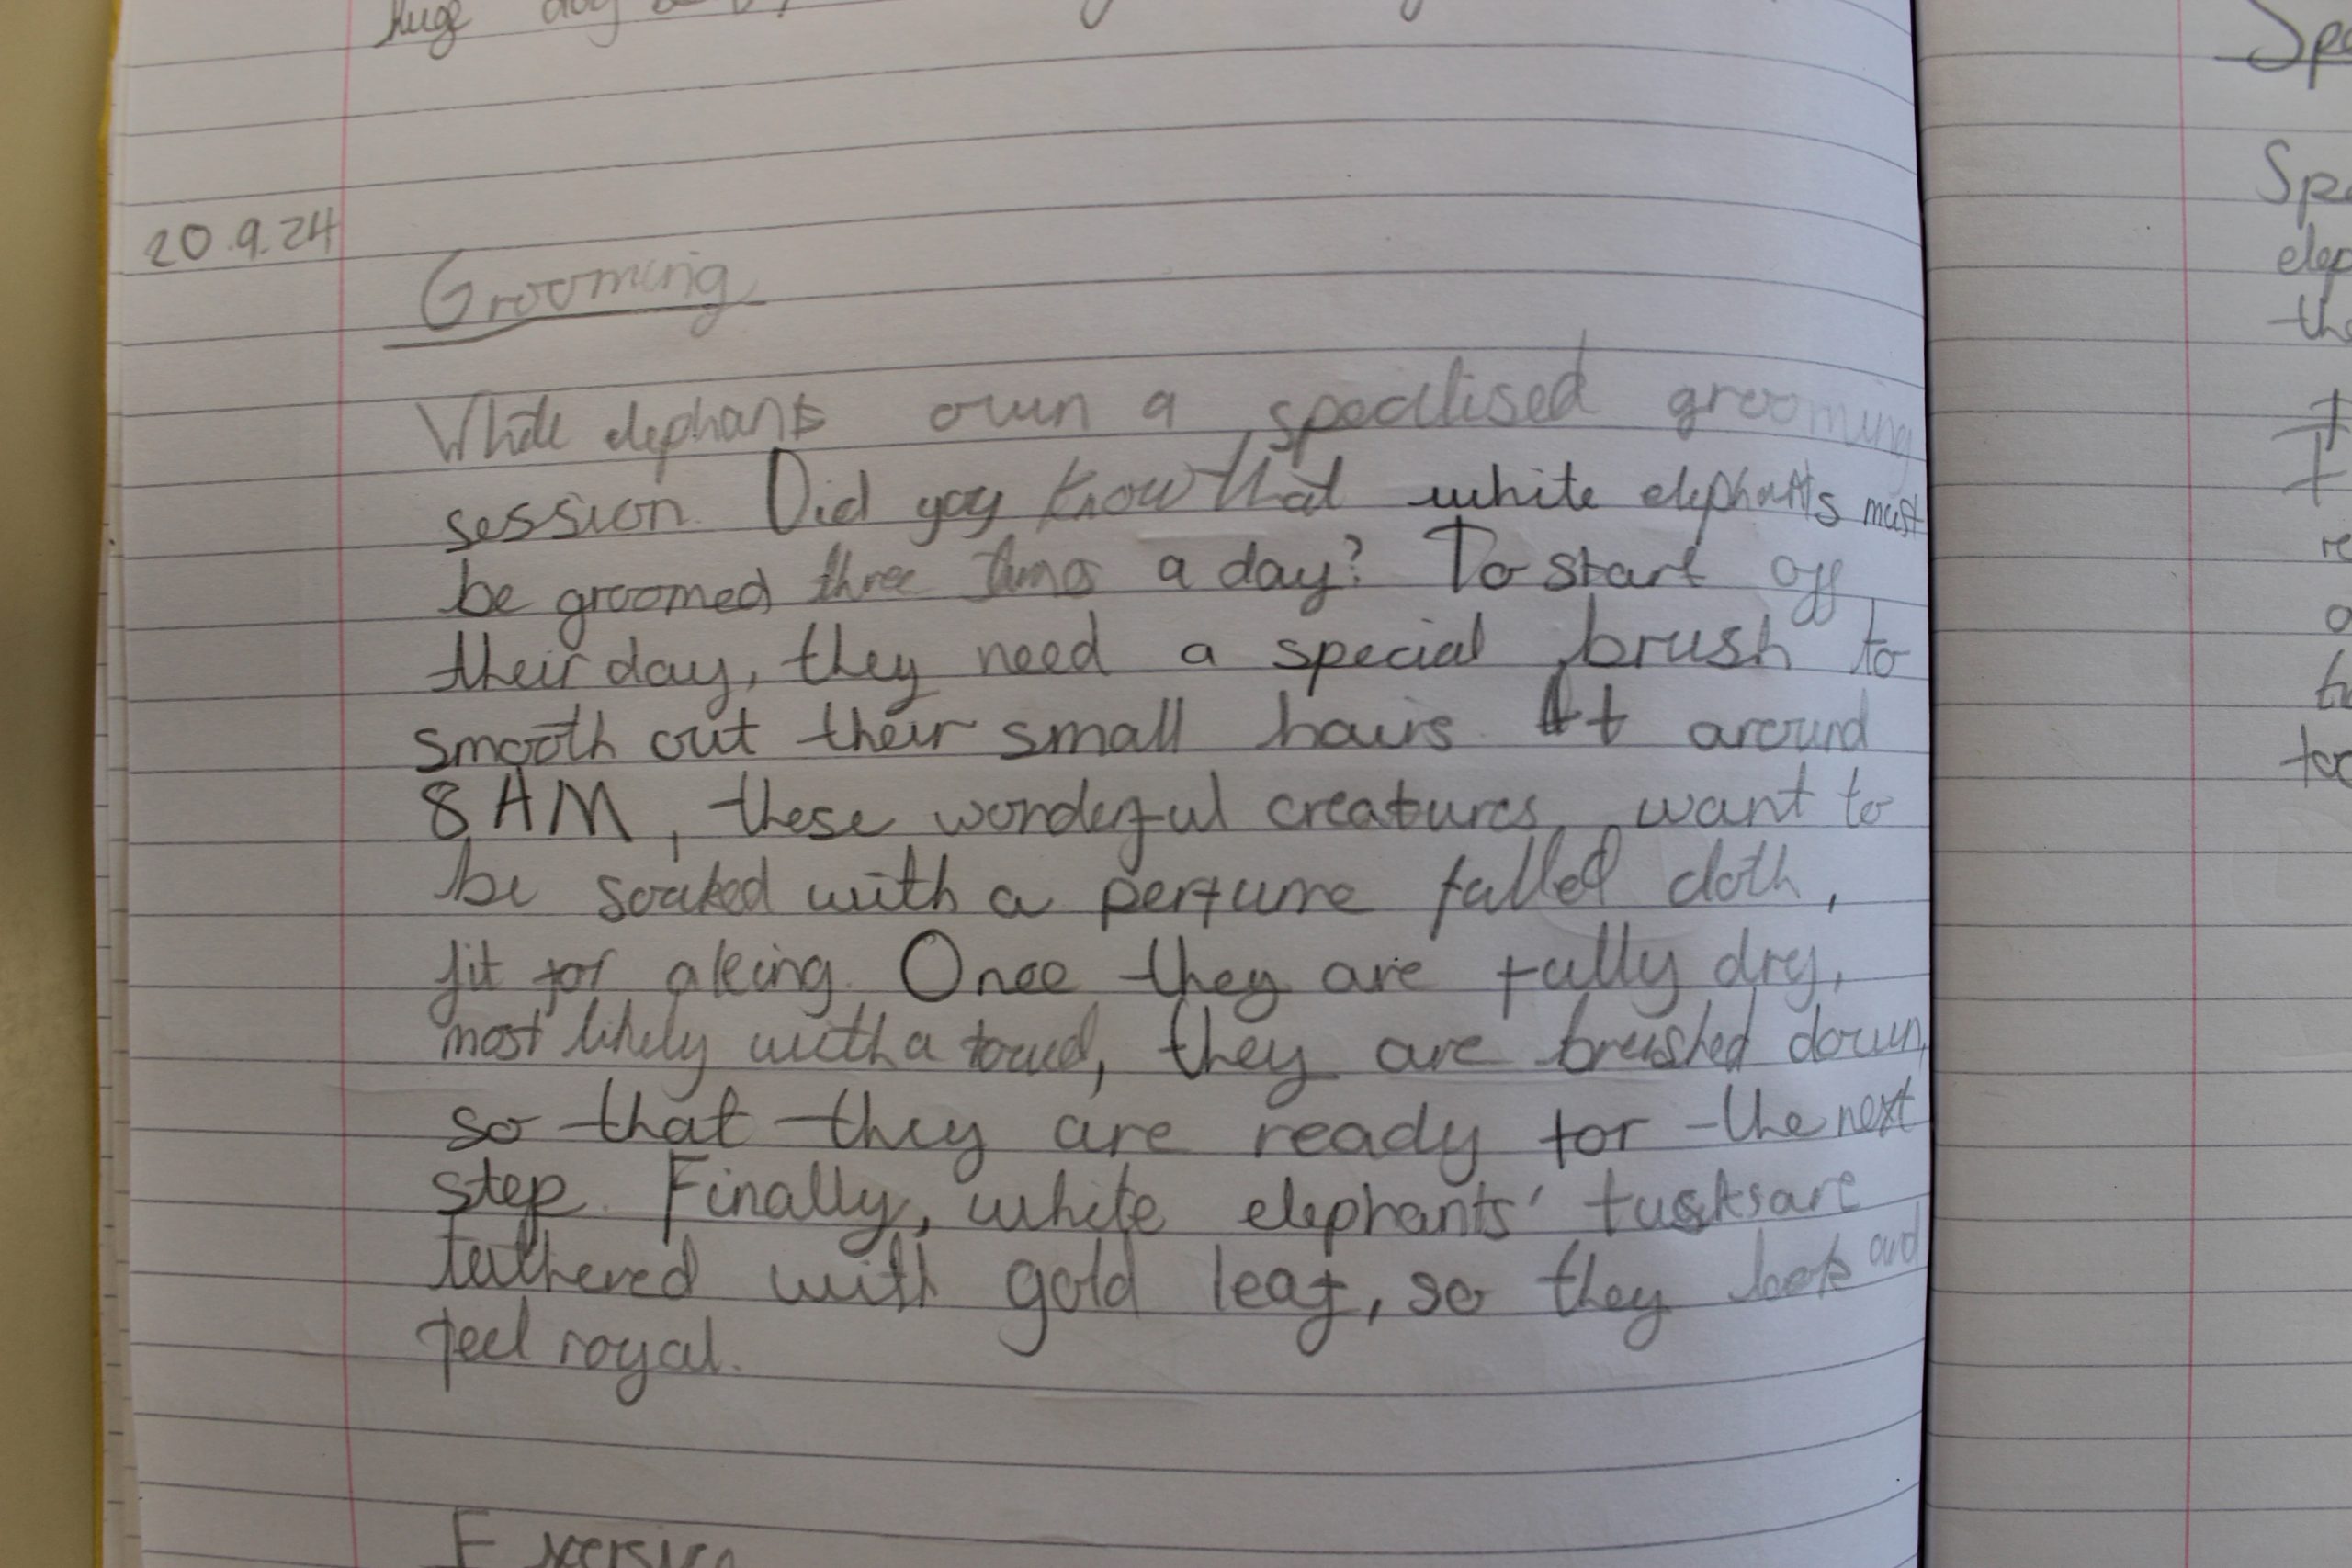 huge day
20.9.24
Grooming
White elephants own a specilised grooming
session. Did you know that white elephants must
be groomed three times a day? To start off
their day, they need a special brush to
smooth out their small hairs. At around
8 AM, these wonderful creatures want to
be soaked with a perfume falled cloth,
fit for a king. Once they are fully dry,
most likely with a towel, they are brushed down,
so that they are ready for the next
step. Finally, white elephants' tusks are
tethered with gold leaf, so they look and
feel royal.
Sp
Spe
elep
the
re
too